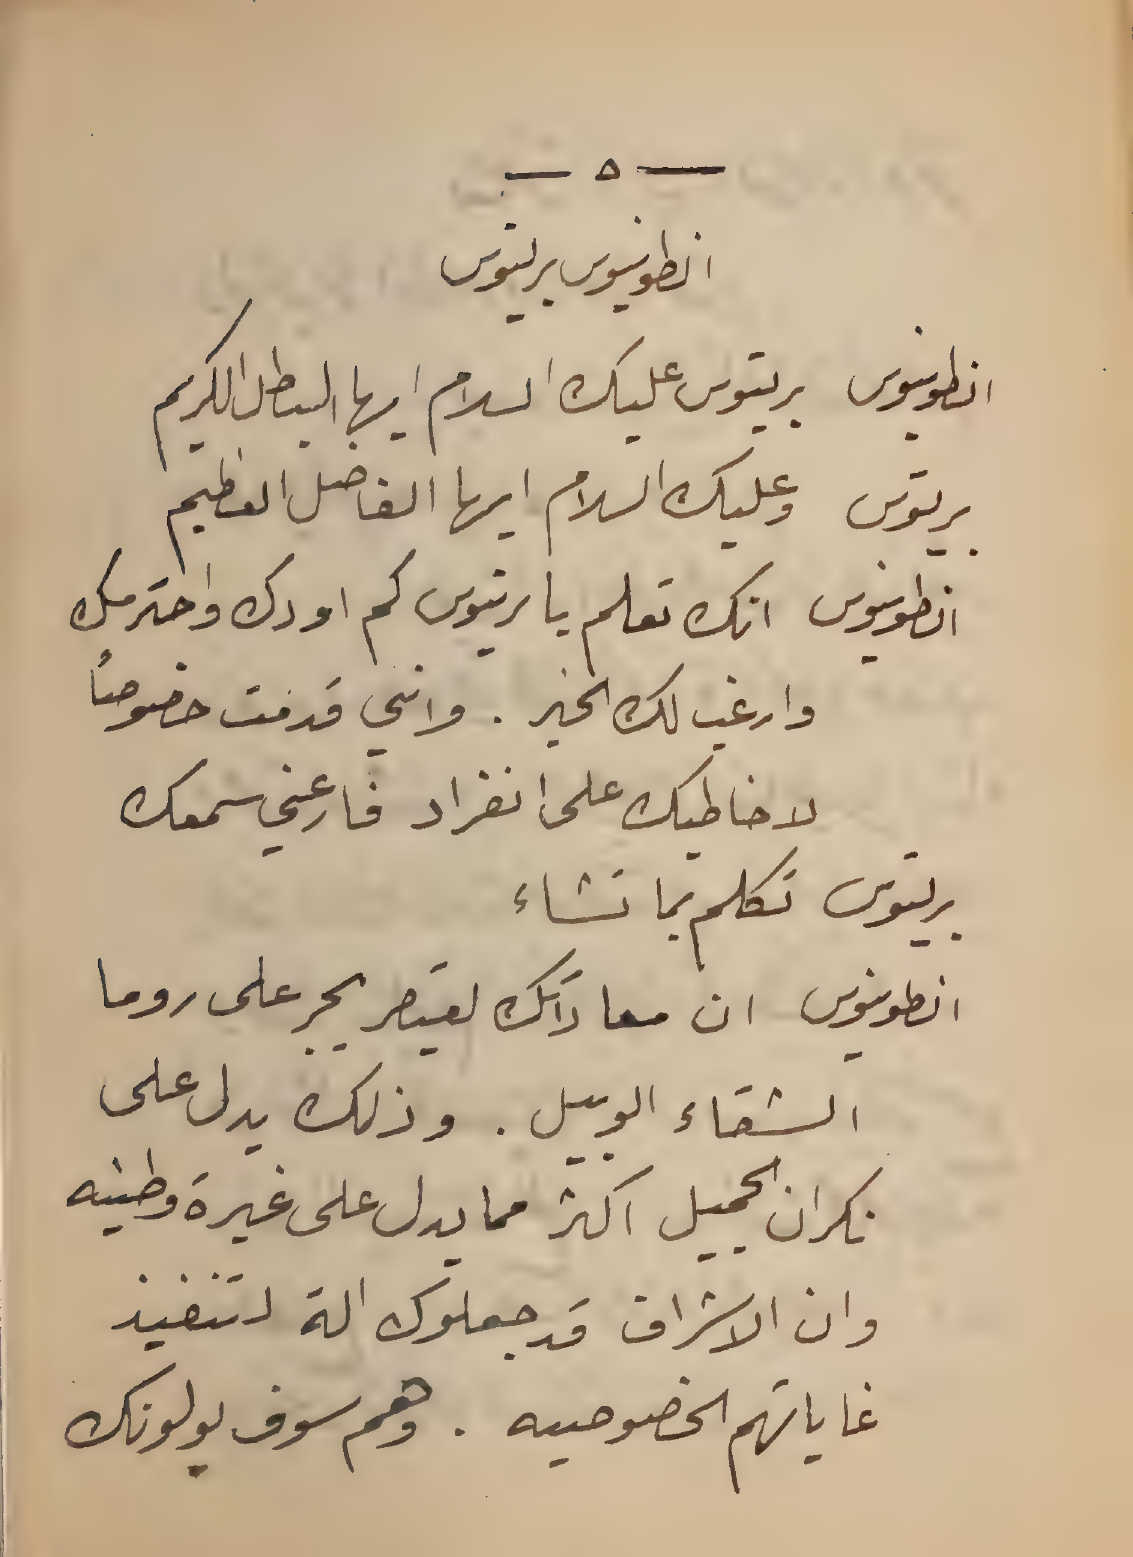 — ٥ —
انطونيوس بريتوس
انطونيوس بريتوس عليك السلام ايها البطل الكريم
بريتوس وعليك السلام ايها الفاضل العظيم
انطونيوس انك تعلم يا بريتوس كم اودك واحترمك
وارغب لك الخير . وانني قدمت خصوصاً
لاخاطبك على انفراد فارعني سمعك
بريتوس تكلم بما تشاء
انطونيوس ان معاداتك لقيصر يجر على روما
الشقاء الوبيل . وذلك يدل على
نكران الجميل اكثر مما يدل على غيرة وطنيه
وان الاشراف قد جعلوك الة لتنفيذ
غاياتهم الخصوصيه . وهم سوف يولونك